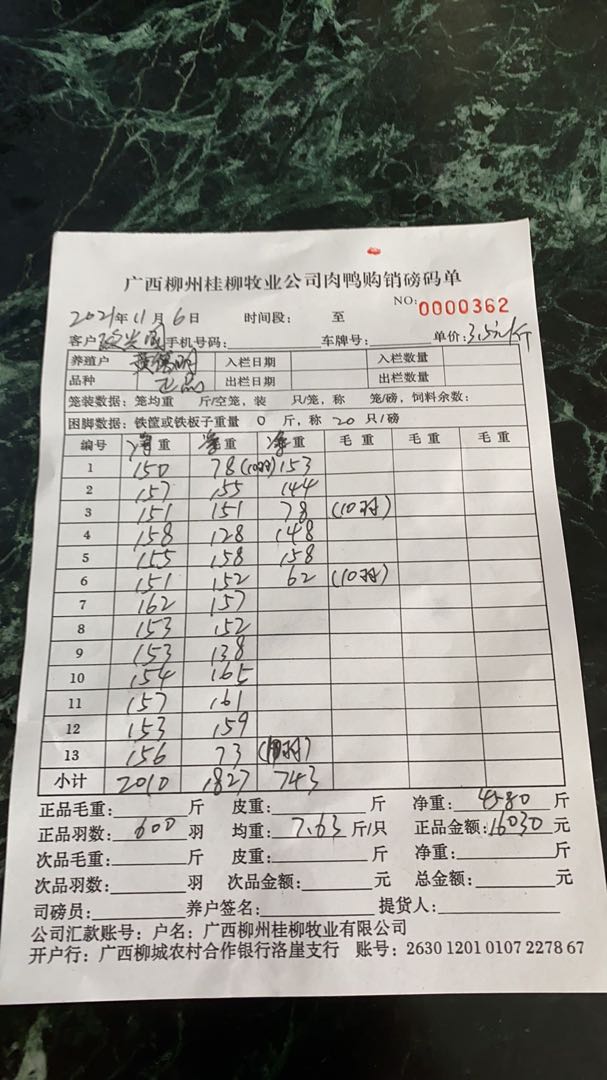 广西柳州桂柳牧业公司肉鸭购销磅码单
NO: 0000362
2021年11月6日 时间段： 至
客户 手机号码： 车牌号： 单价：3.5元/斤
养殖户 入栏日期 入栏数量
品种 正品 出栏日期 出栏数量
笼装数据：笼均重 斤/空笼，装 只/笼，称 笼/磅，饲料余数：
困脚数据：铁筐或铁板子重量 0 斤，称 20 只/磅
编号 净重 净重 净重 毛重 毛重 毛重
1 150 78(10羽) 153
2 157 155 144
3 151 151 78 (10羽)
4 158 128 148
5 155 158 158
6 151 152 62 (10羽)
7 162 157
8 153 152
9 153 138
10 154 165
11 157 161
12 153 159
13 156 73 (10羽)
小计 2010 1827 743
正品毛重： 斤 皮重： 斤 净重：4580 斤
正品羽数：600 羽 均重：7.63 斤/只 正品金额：16030 元
次品毛重： 斤 皮重： 斤 净重： 斤
次品羽数： 羽 次品金额： 元 总金额： 元
司磅员： 养户签名： 提货人：
公司汇款账号：户名：广西柳州桂柳牧业有限公司
开户行：广西柳城农村合作银行洛崖支行 账号：2630 1201 0107 2278 67